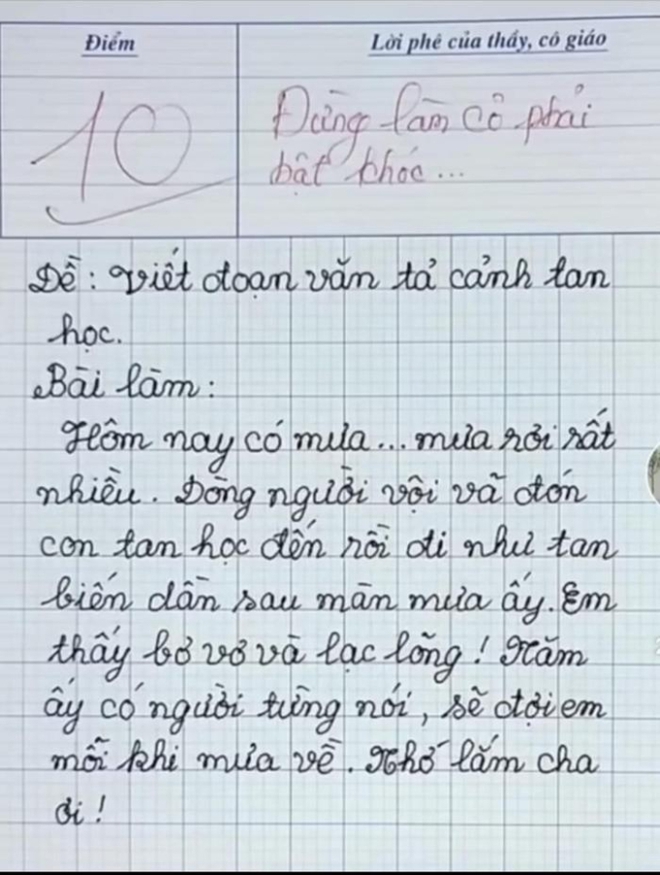 Điểm
Lời phê của thầy, cô giáo
10
Đừng làm cô phải
bật khóc...
Đề: Viết đoạn văn tả cảnh tan
học.
Bài làm:
Hôm nay có mưa... mưa rơi rất
nhiều. Dòng người vội vã đón
con tan học đến rồi đi như tan
biến dần sau màn mưa ấy. Em
thấy bơ vơ và lạc lõng! Năm
ấy có người từng nói, sẽ đợi em
mỗi khi mưa về. Nhớ lắm cha
ơi!